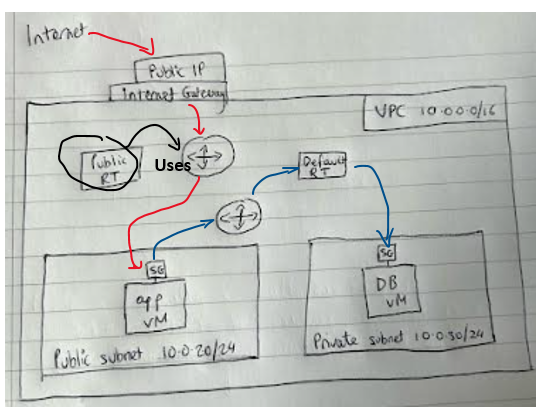 Internet
Public IP
Internet Gateway
VPC 10.0.0.0/16
Public
RT
Uses
Default
RT
SG
app
VM
Public subnet 10.0.20/24
SG
DB
VM
Private subnet 10.0.30/24